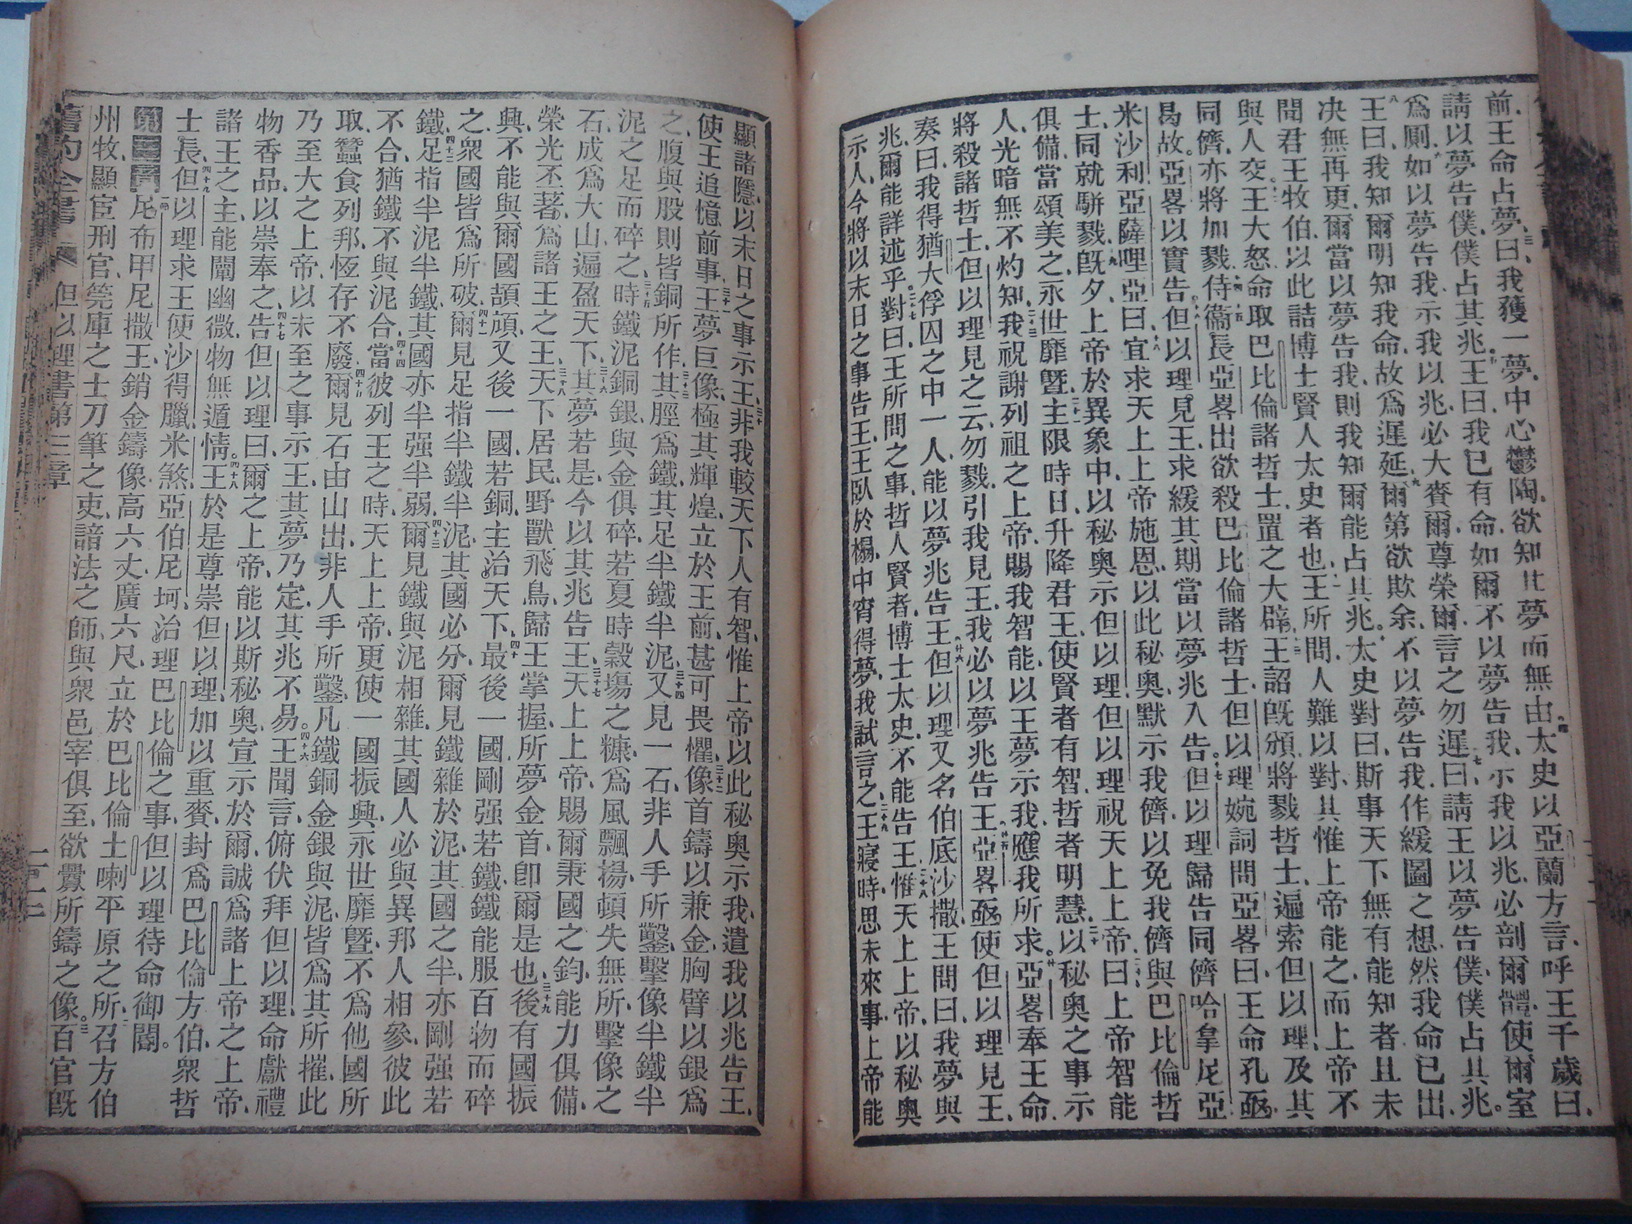 前王命占夢曰我獲一夢中心鬱陶欲知其夢而無由太史以亞蘭方言呼王千歲曰
請以夢告僕僕占其兆王曰我已有命如爾不以夢告我示我以兆必剖爾體使爾室
爲廁如以夢告我示我以兆必大賚爾尊榮爾言之勿遲曰請王以夢告僕僕占其兆
王曰我知爾明知我命故爲遲延爾第欲欺余不以夢告我作緩圖之想然我命已出
決無再更爾當以夢告我則我知爾能占其兆太史對曰斯事天下無有能知者且未
聞君王牧伯以此詰博士賢人太史者也王所問人難以對其惟上帝能之而上帝不
與人交王大怒命取巴比倫諸哲士置之大辟王詔旣頒將戮哲士遍索但以理及其
同儕亦將加戮侍衞長亞畧出欲殺巴比倫諸哲士但以理婉詞問亞畧曰王命孔亟
曷故亞畧以實告但以理見王求緩其期當以夢兆入告但以理歸告同儕哈拿尼亞
米沙利亞薩哩亞曰宜求天上上帝施恩以此秘奧默示我儕以免我儕與巴比倫哲
士同就駢戮旣夕上帝於異象中以秘奧示但以理但以理祝天上上帝曰上帝智能
俱備當頌美之永世靡曁主限時日升降君王使賢者有智哲者明慧以秘奧之事示
人光暗無不灼知我祝謝列祖之上帝賜我智能以王夢示我應我所求亞畧奉王命
將殺諸哲士但以理見之云勿戮引我見王我必以夢兆告王亞畧亟使但以理見王
奏曰我得猶大俘囚之中一人能以夢兆告王但以理又名伯底沙撒王問曰我夢與
兆爾能詳述乎對曰王所問之事哲人賢者博士太史不能告王惟天上上帝以秘奧
示人今將以末日之事告王王臥於榻中宵得夢我試言之王寢時思未來事上帝能
顯諸隱以末日之事示王非我較天下人有智惟上帝以此秘奧示我遣我以兆告王
使王追憶前事王夢巨像極其輝煌立於王前甚可畏懼像首鑄以兼金胸臂以銀爲
之腹與股則皆銅所作其脛爲鐵其足半鐵半泥又見一石非人手所鑿擊像半鐵半
泥之足而碎之時鐵泥銅銀與金俱碎若夏時穀場之糠爲風飄揚頓失無所擊像之
石成爲大山遍盈天下其夢若是今以其兆告王天上上帝賜爾秉國之鈞能力俱備
榮光丕著爲諸王之王天下居民野獸飛鳥歸王掌握所夢金首卽爾是也後有國振
興不能與爾國頡頏又後一國若銅主治天下最後一國剛强若鐵鐵能服百物而碎
之衆國皆爲所破爾見足指半鐵半泥其國必分爾見鐵雜於泥其國之半亦剛强若
鐵足指半泥半鐵其國亦半强半弱爾見鐵與泥相雜其國人必與異邦人相參彼此
不合猶鐵不與泥合當彼列王之時天上上帝更使一國振興永世靡曁不爲他國所
取蠶食列邦恆存不廢爾見石由山出非人手所鑿凡鐵銅金銀與泥皆爲其所摧此
乃至大之上帝以未至之事示王其夢乃定其兆不易王聞言俯伏拜但以理命獻禮
物香品以崇奉之告但以理曰爾之上帝能以斯秘奧宣示於爾誠爲諸上帝之上帝
諸王之主能闡幽微物無遁情王於是尊崇但以理加以重賚封爲巴比倫方伯衆哲
士長但以理求王使沙得臘米煞亞伯尼坷治理巴比倫之事但以理待命御闕
第三章尼布甲尼撒王銷金鑄像高六丈廣六尺立於巴比倫土喇平原之所召方伯
州牧顯宦刑官筦庫之士刀筆之吏諳法之師與衆邑宰俱至欲釁所鑄之像百官旣
舊約全書 但以理書第三章